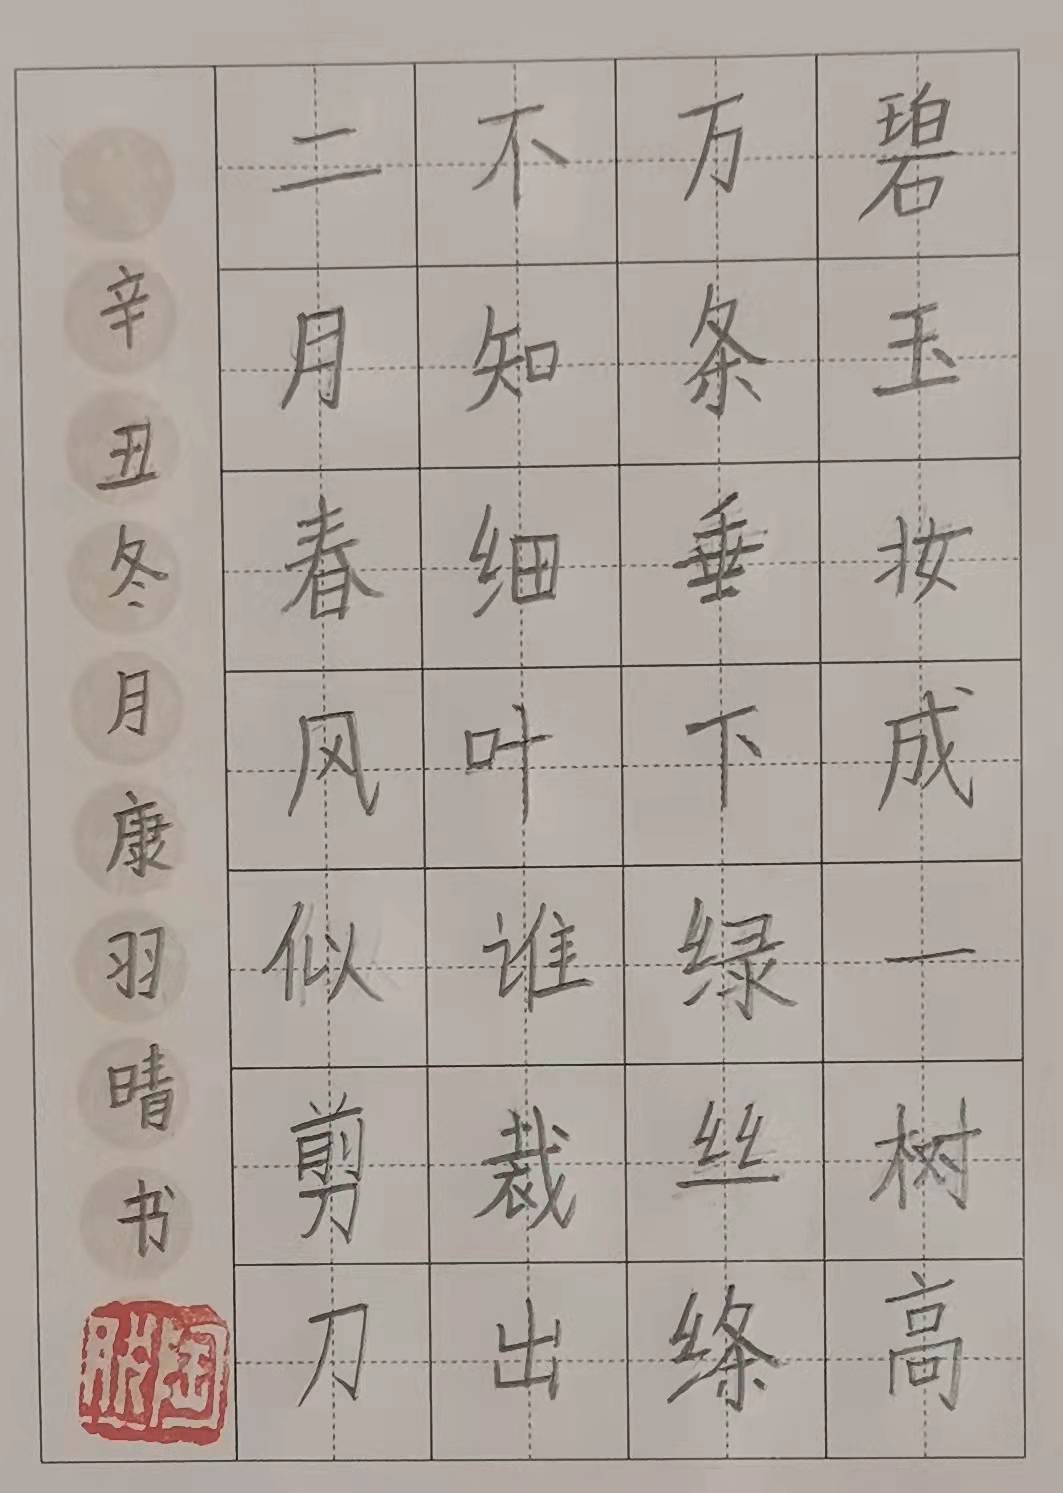 碧玉妆成一树高
万条垂下绿丝绦
不知细叶谁裁出
二月春风似剪刀
辛丑冬月康羽晴书